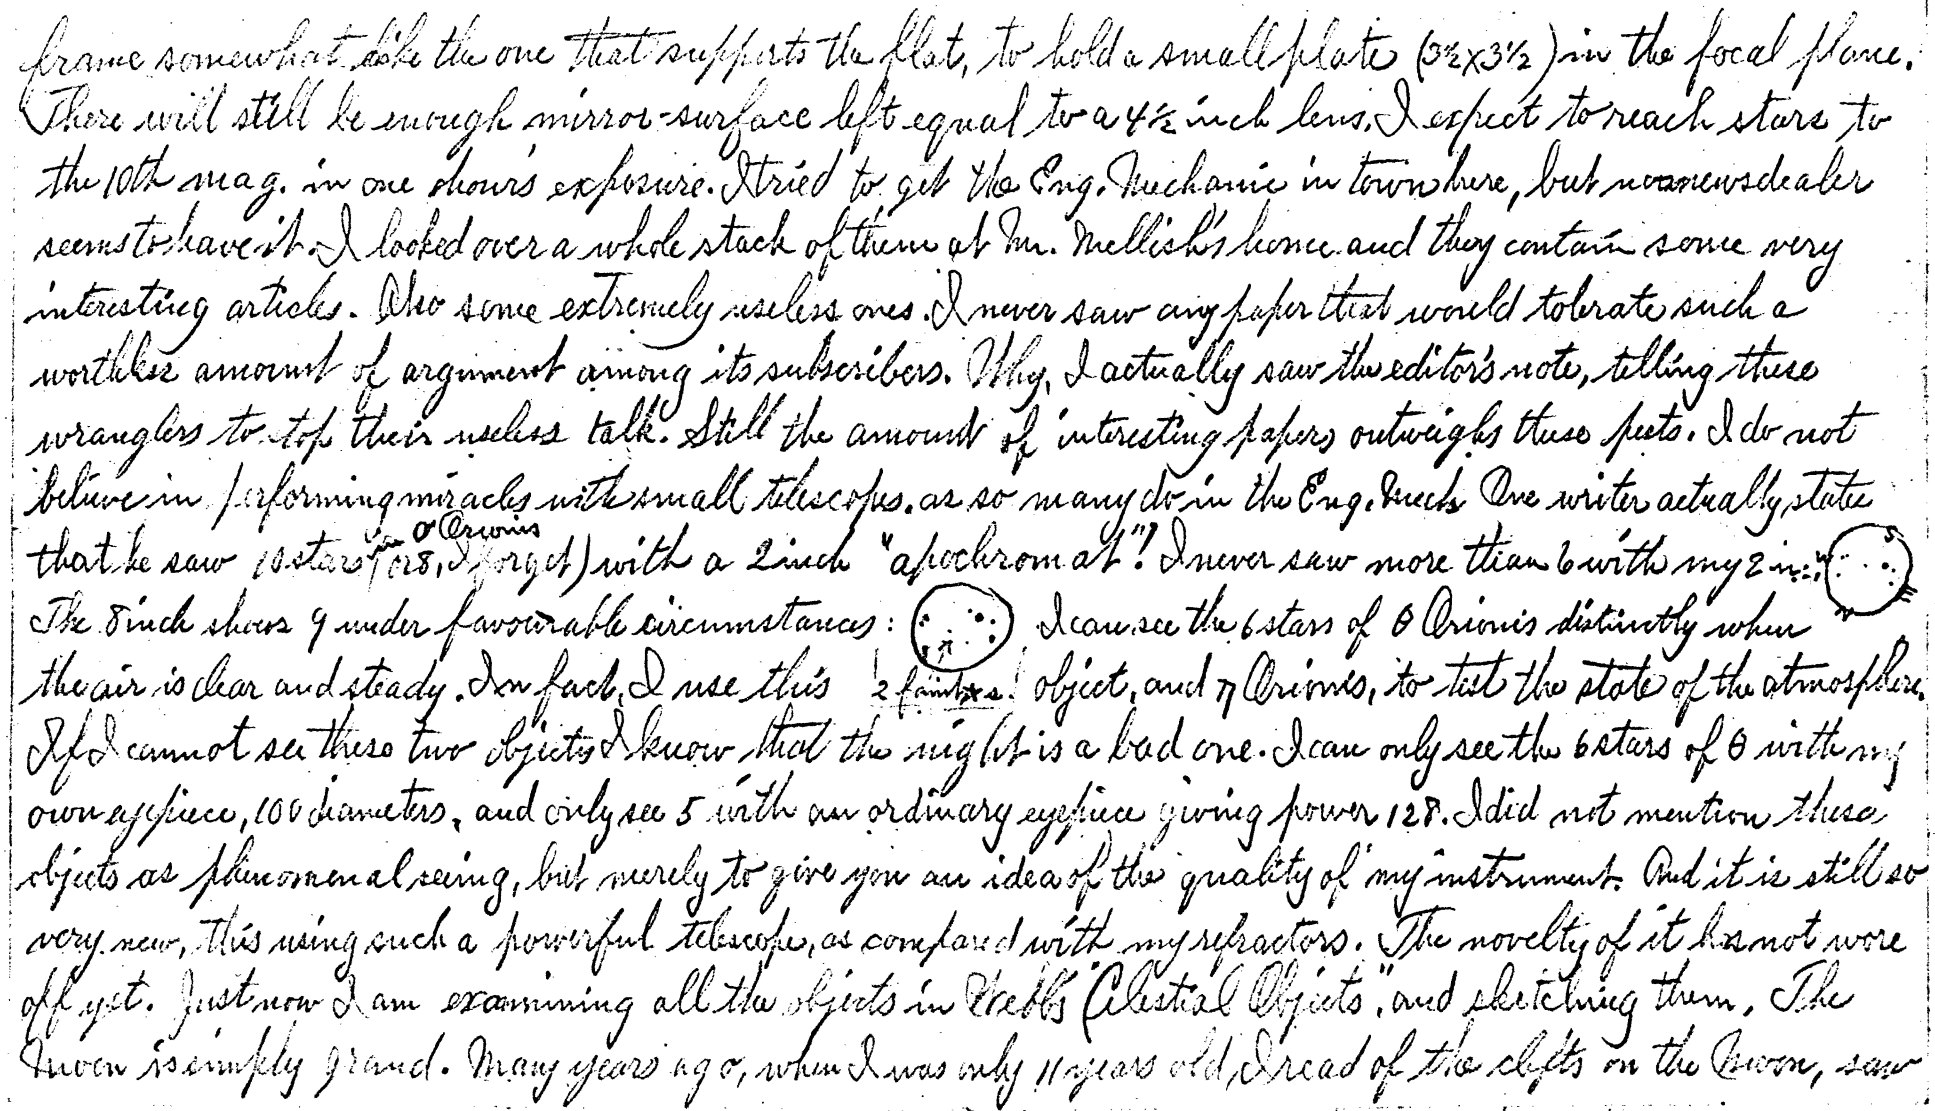 frame somewhat like the one that supports the flat, to hold a small plate (3½x3½) in the focal plane.
There will still be enough mirror-surface left equal to a 4½ inch lens. I expect to reach stars to
the 10th mag. in one hour's exposure. I tried to get the Eng. Mechanic in town here, but no newsdealer
seems to have it. I looked over a whole stack of them at Mr. Mellish's home and they contain some very
interesting articles. Also some extremely useless ones. I never saw any paper that would tolerate such a
worthless amount of argument among its subscribers. Why, I actually saw the editor's note, telling these
wranglers to top their useless talk. Still the amount of interesting papers outweighs these pests. I do not
believe in performing miracles with small telescopes, as so many do in the Eng. Mech. One writer actually states
in σ Orionis
that he saw 10 stars (or 8, I forget) with a 2 inch "apochromat"! I never saw more than 6 with my 2 in.:
The 8 inch shows 9 under favourable circumstances: I can see the 6 stars of θ Orionis distinctly when
the air is clear and steady. In fact, I use this 2 faint *s! object, and η Orionis, to test the state of the atmosphere.
If I cannot see these two objects I know that the night is a bad one. I can only see the 6 stars of θ with my
own eyepiece, 100 diameters, and only see 5 with an ordinary eyepiece giving power 128. I did not mention these
objects as phenomenal seeing, but merely to give you an idea of the quality of my instrument. And it is still so
very new, this using such a powerful telescope, as compared with my refractors. The novelty of it has not wore
off yet. Just now I am examining all the objects in Webb's "Celestial Objects", and sketching them. The
Moon is simply grand. Many years ago, when I was only 11 years old, I read of the clefts on the Moon, saw